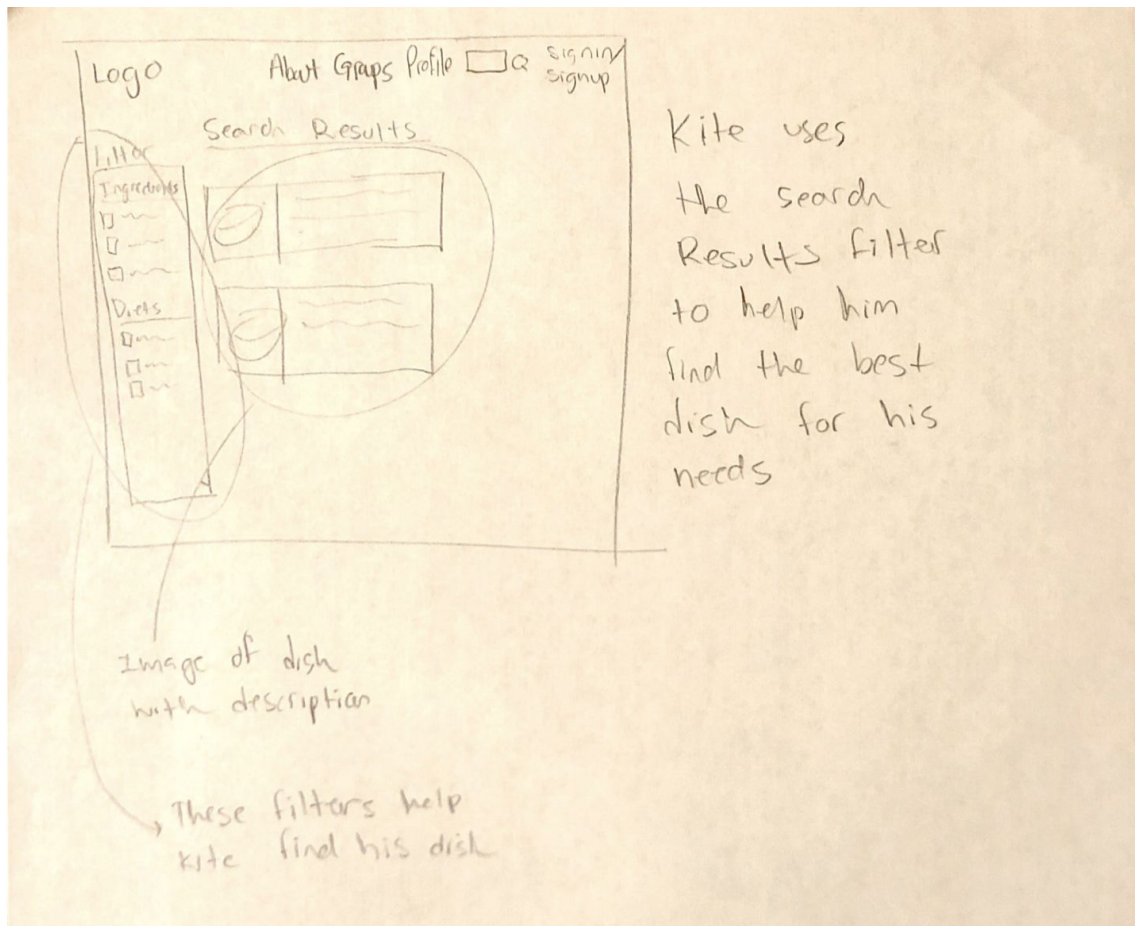 Logo About Groups Profile Q signin/
signup
Search Results
Filter
Ingredients
Diets
Kite uses
the search
Results filter
to help him
find the best
dish for his
needs
Image of dish
with description
These filters help
kite find his dish